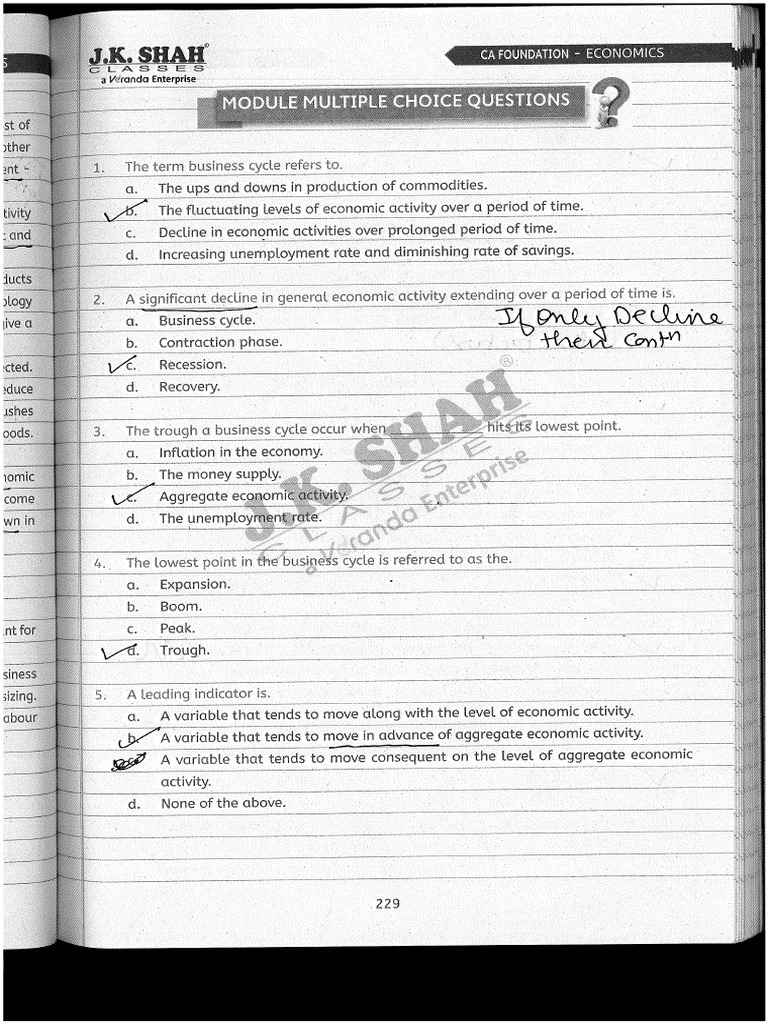 J.K. SHAH®
CLASSES
a Veranda Enterprise
CA FOUNDATION - ECONOMICS
MODULE MULTIPLE CHOICE QUESTIONS
S
st of
other
ent -
tivity
t and
ducts
ology
give a
ected.
educe
ushes
oods.
nomic
come
wn in
nt for
siness
sizing.
abour
1. The term business cycle refers to.
a. The ups and downs in production of commodities.
b. The fluctuating levels of economic activity over a period of time.
c. Decline in economic activities over prolonged period of time.
d. Increasing unemployment rate and diminishing rate of savings.
2. A significant decline in general economic activity extending over a period of time is.
a. Business cycle.
b. Contraction phase.
c. Recession.
d. Recovery.
If Only Decline
then Contn
3. The trough a business cycle occur when ____________ hits its lowest point.
a. Inflation in the economy.
b. The money supply.
c. Aggregate economic activity.
d. The unemployment rate.
J.K. SHAH®
CLASSES
a Veranda Enterprise
4. The lowest point in the business cycle is referred to as the.
a. Expansion.
b. Boom.
c. Peak.
d. Trough.
5. A leading indicator is.
a. A variable that tends to move along with the level of economic activity.
b. A variable that tends to move in advance of aggregate economic activity.
A variable that tends to move consequent on the level of aggregate economic
activity.
d. None of the above.
229